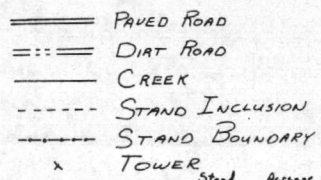 PAVED ROAD
DIRT ROAD
CREEK
STAND INCLUSION
STAND BOUNDARY
TOWER
Stand Acreage